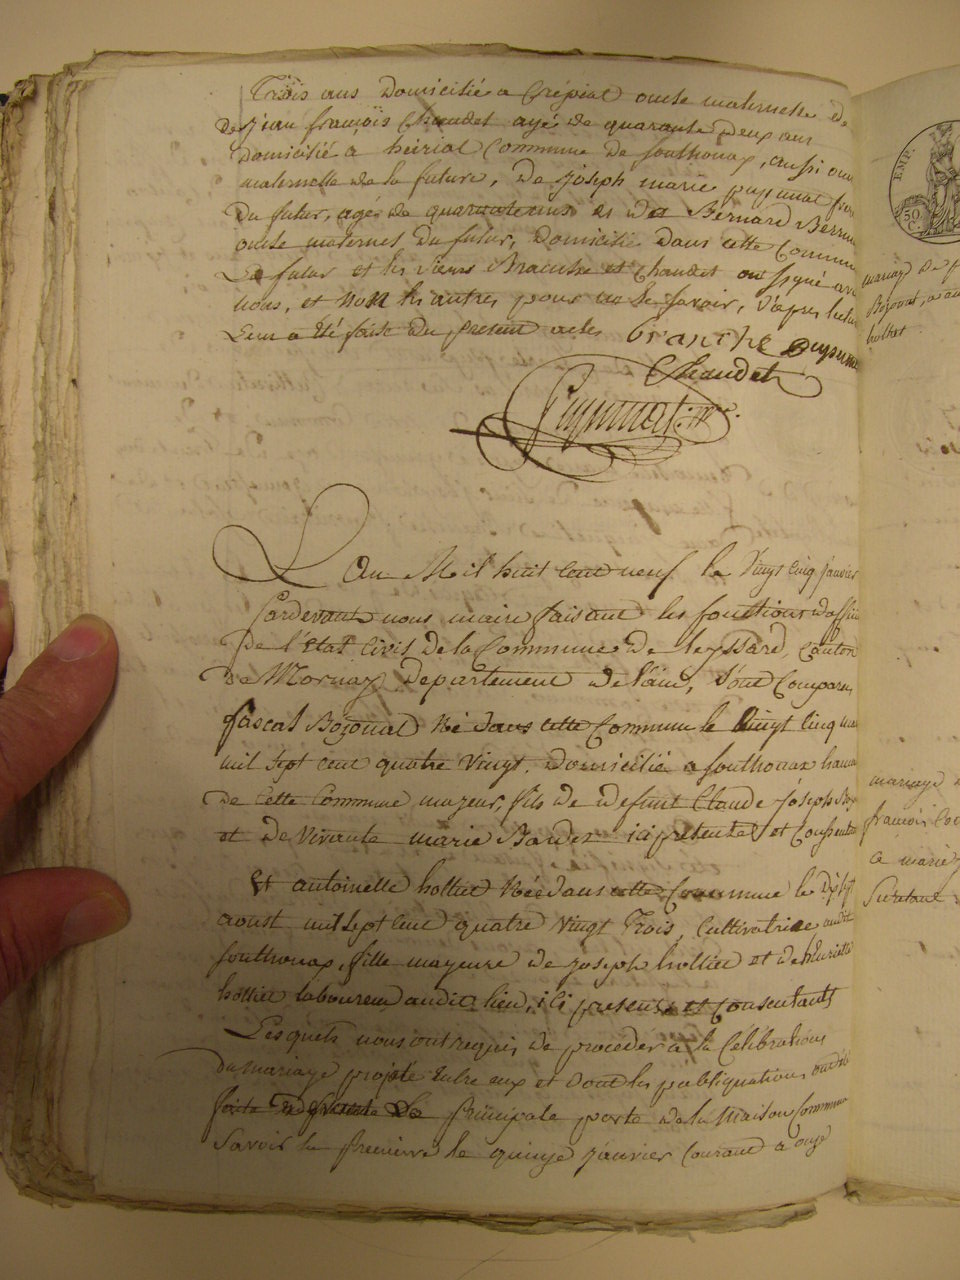 Trois ans domicilié a Crépiat oncle maternelle de
De Jean françois Chaudet agé de quarante deux ans
domicilié a heiriat Commune de Sonthonax, aussi oncle
maternelle de la future, De Joseph marie puymat frere
Du futur, agé de quarante ans et de Bernard
oncle maternel du futur, domicilié dans cette Commune
Le futur et les sieurs Branche et Chaudet ont signé avec
nous, et Non les autres pour ne le savoir, d'après lecture
Leur a été faite du present acte branche
Chaudet
L'an Mil huit cent neuf le Vingt cinq janvier
Pardevant nous maire faisant les fonctions d'officier
De l'état Civil De la Commune De leyssard, Canton
De Mornay Departement de l'ain, sont Comparus
pascal Bozonat Né dans cette Commune le Vingt cinq
mil sept cent quatre Vingt, domicilié a sonthonax hameau
de cette Commune, mazeur, fils de defunt Claude Joseph
et de Vivante marie ici présente et Consentante
Et antoinette hottiet Née dans cette Commune le dix sept
aoust mil sept cent quatre Vingt Trois, Cultivatrice audit
Sonthonax, fille mayeure de Joseph hottiet et de
hottiet laboureur audit lieu, ici présents et Consentants
Lesquels nous ont requis de proceder a la Célébration
Du mariage projeté entre eux et dont les publiquations ont été
faite Devant La principale porte de la Maison Commune
Savoir la premierre le quinze janvier Courant a onze
EMP.
50 C.
mariage de
Bozonat,
hottiet
mariage
françois
ce mariage